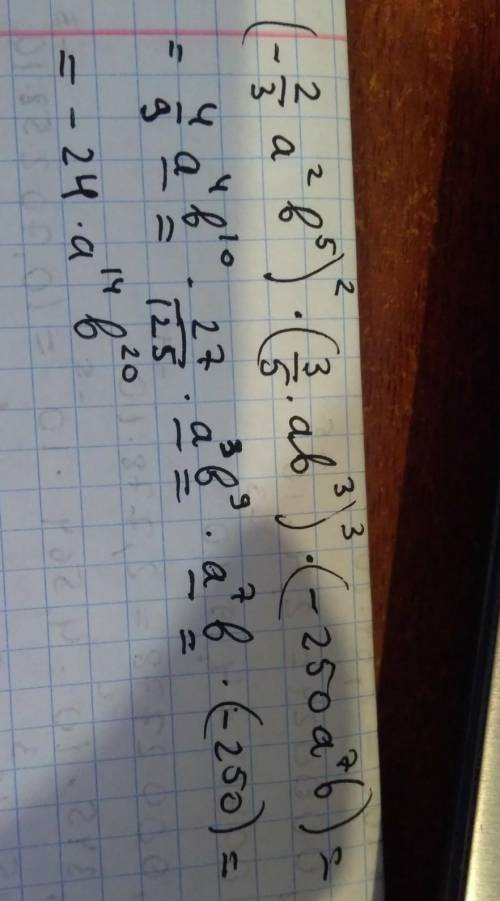 (-2/3 a²b⁵)² · (3/5 · ab³)³ · (-250a⁷b) =
= 4/9 a⁴b¹⁰ · 27/125 · a³b⁹ · a⁷b · (-250) =
= -24 · a¹⁴b²⁰